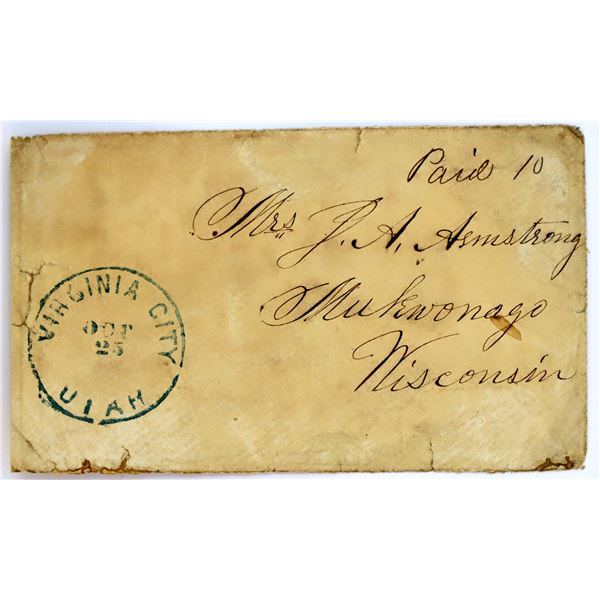 Paid 10
Mrs J. A. Armstrong
Mukwonago
Wisconsin
VIRGINIA CITY
OCT
25
UTAH